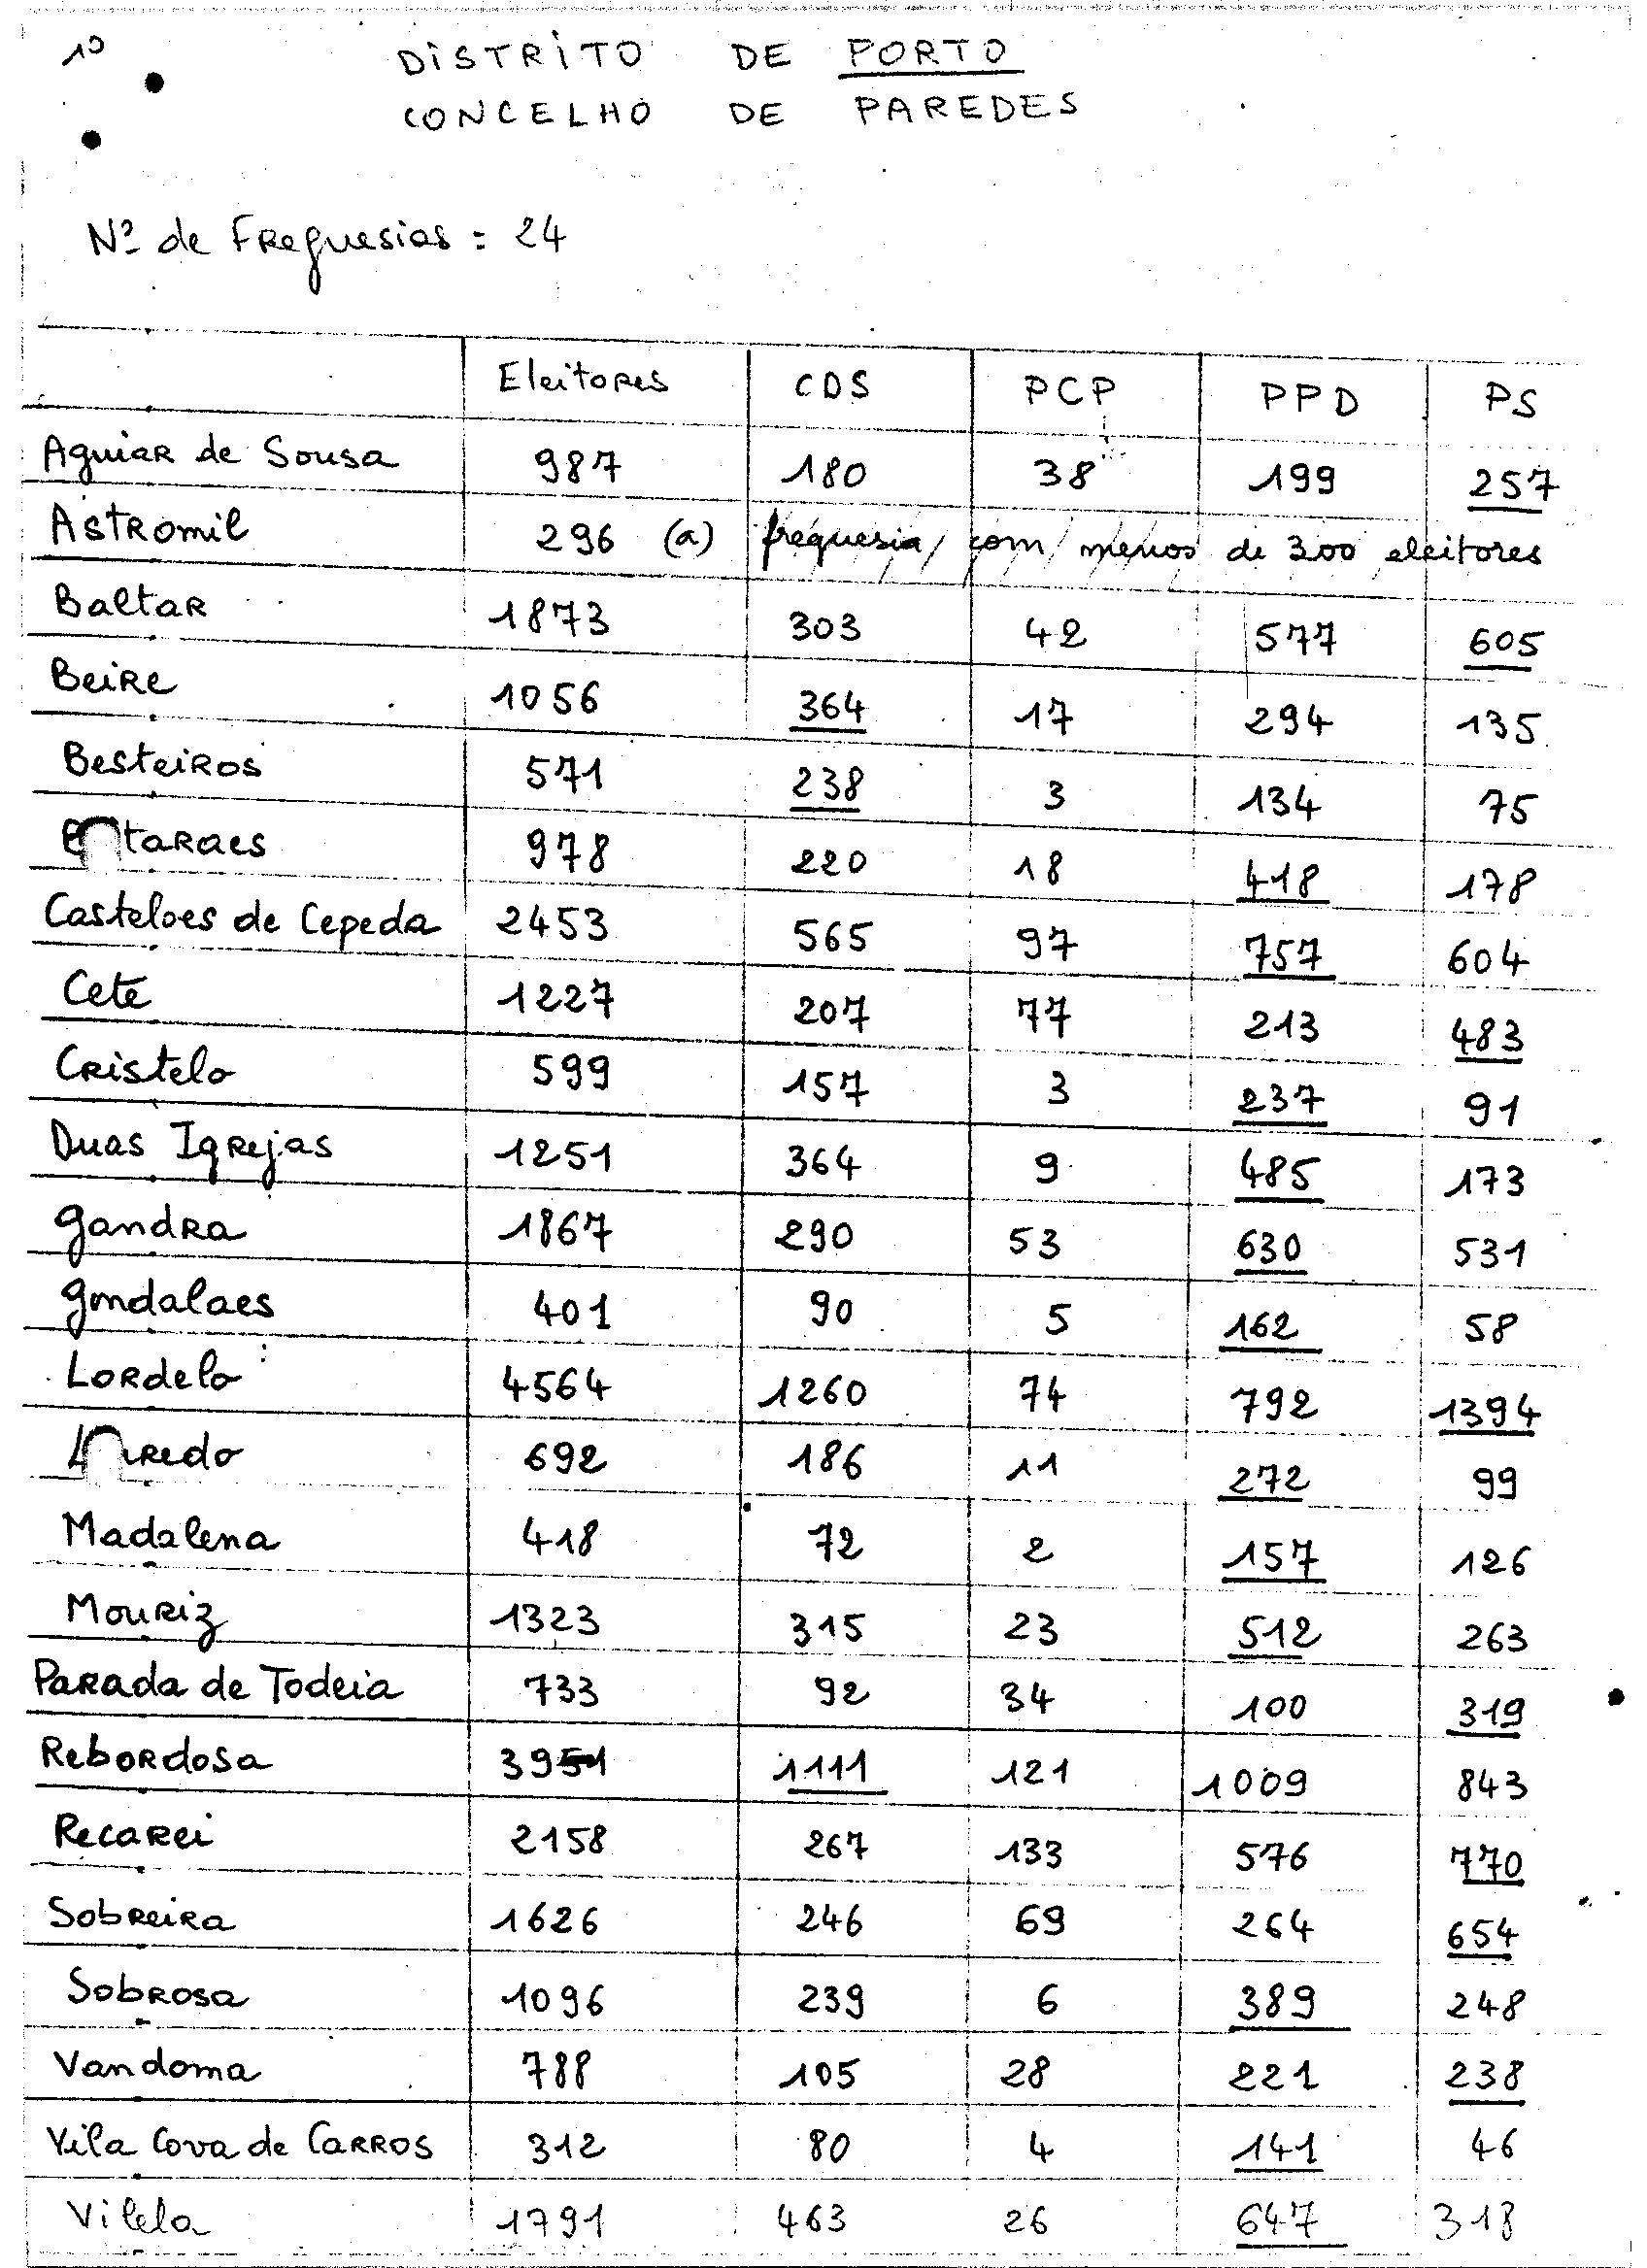 10
DISTRITO DE PORTO
CONCELHO DE PAREDES
Nº de Freguesias = 24
Eleitores CDS PCP PPD PS
Aguiar de Sousa 987 180 38 199 257
Astromil 296 (a) freguesia com menos de 300 eleitores
Baltar 1873 303 42 577 605
Beire 1056 364 17 294 135
Besteiros 571 238 3 134 75
978 220 18 418 178
Casteloes de Cepeda 2453 565 97 757 604
Cete 1227 207 77 213 483
Cristelo 599 157 3 237 91
Duas Igrejas 1251 364 9 485 173
Gandra 1867 290 53 630 531
Gondalaes 401 90 5 162 58
Lordelo 4564 1260 74 792 1394
692 186 11 272 99
Madalena 418 72 2 157 126
Mouriz 1323 315 23 512 263
Parada de Todeia 733 92 34 100 319
Rebordosa 3951 1111 121 1009 843
Recarei 2158 267 133 576 770
Sobreira 1626 246 69 264 654
Sobrosa 1096 239 6 389 248
Vandoma 788 105 28 221 238
Vila Cova de Carros 312 80 4 141 46
Vilela 1791 463 26 647 318